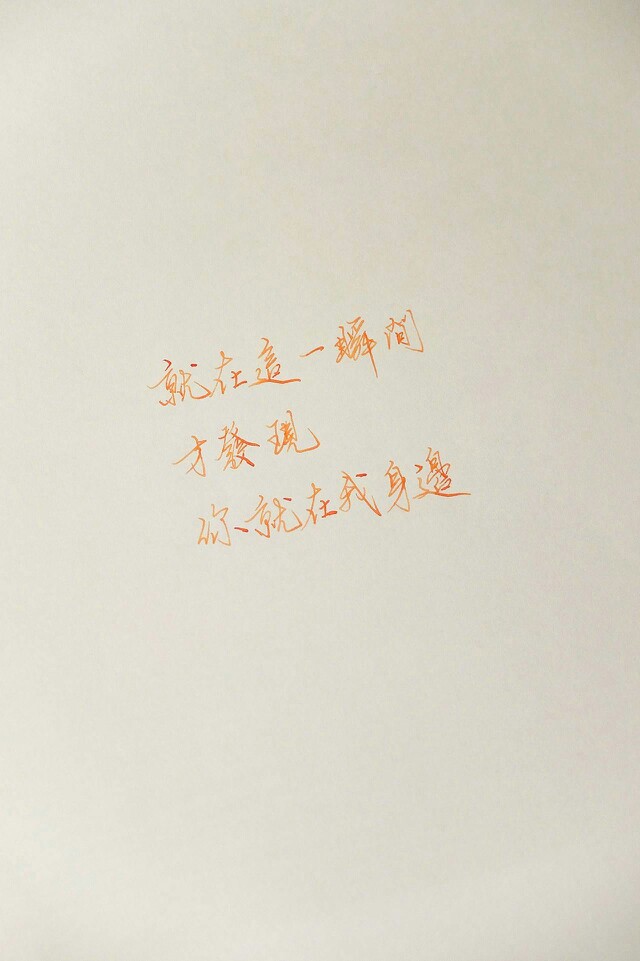 就在這一瞬間
才發現
你就在我身邊